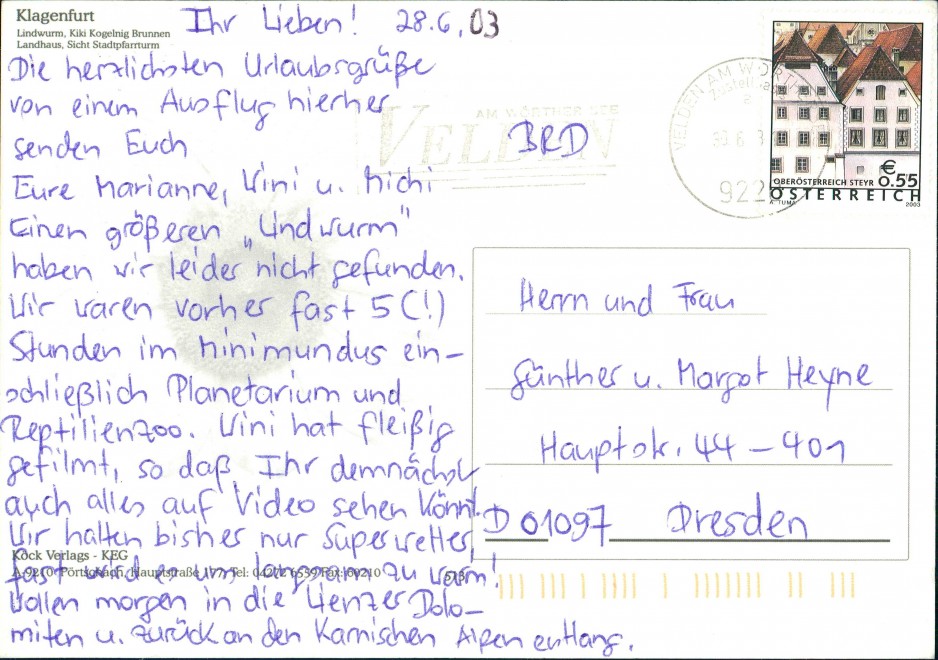 Klagenfurt
Lindwurm, Kiki Kogelnig Brunnen
Landhaus, Sicht Stadtpfarrturm
Ihr Lieben! 28.6.03
Die herzlichsten Urlaubsgrüße
von einem Ausflug hierher
senden Euch
Eure Marianne, Wini u. Michi
Einen größeren „Lindwurm"
haben wir leider nicht gefunden.
Wir waren vorher fast 5 (!)
Stunden im Minimundus ein-
schließlich Planetarium und
Reptilienzoo. Wini hat fleißig
gefilmt, so daß Ihr demnächst
auch alles auf Video sehen könnt.
Wir hatten bisher nur Superwetter,
fast wird es uns langsam zu warm!
Wollen morgen in die Lienzer Dolo-
miten u. zurück an den Karnischen Alpen entlang.
Köck Verlags - KEG
A-9210 Pörtschach, Hauptstraße 177, Tel: 04272 6539 Fax: 60210
513
AM WÖRTHER SEE
VELDEN
BRD
VELDEN AM WÖRTHER
30.6.
922
€
0.55
OBERÖSTERREICH STEYR
ÖSTERREICH
A. TUMA
2003
Herrn und Frau
Günther u. Margot Heyne
Hauptstr. 44 – 401
D 01097 Dresden